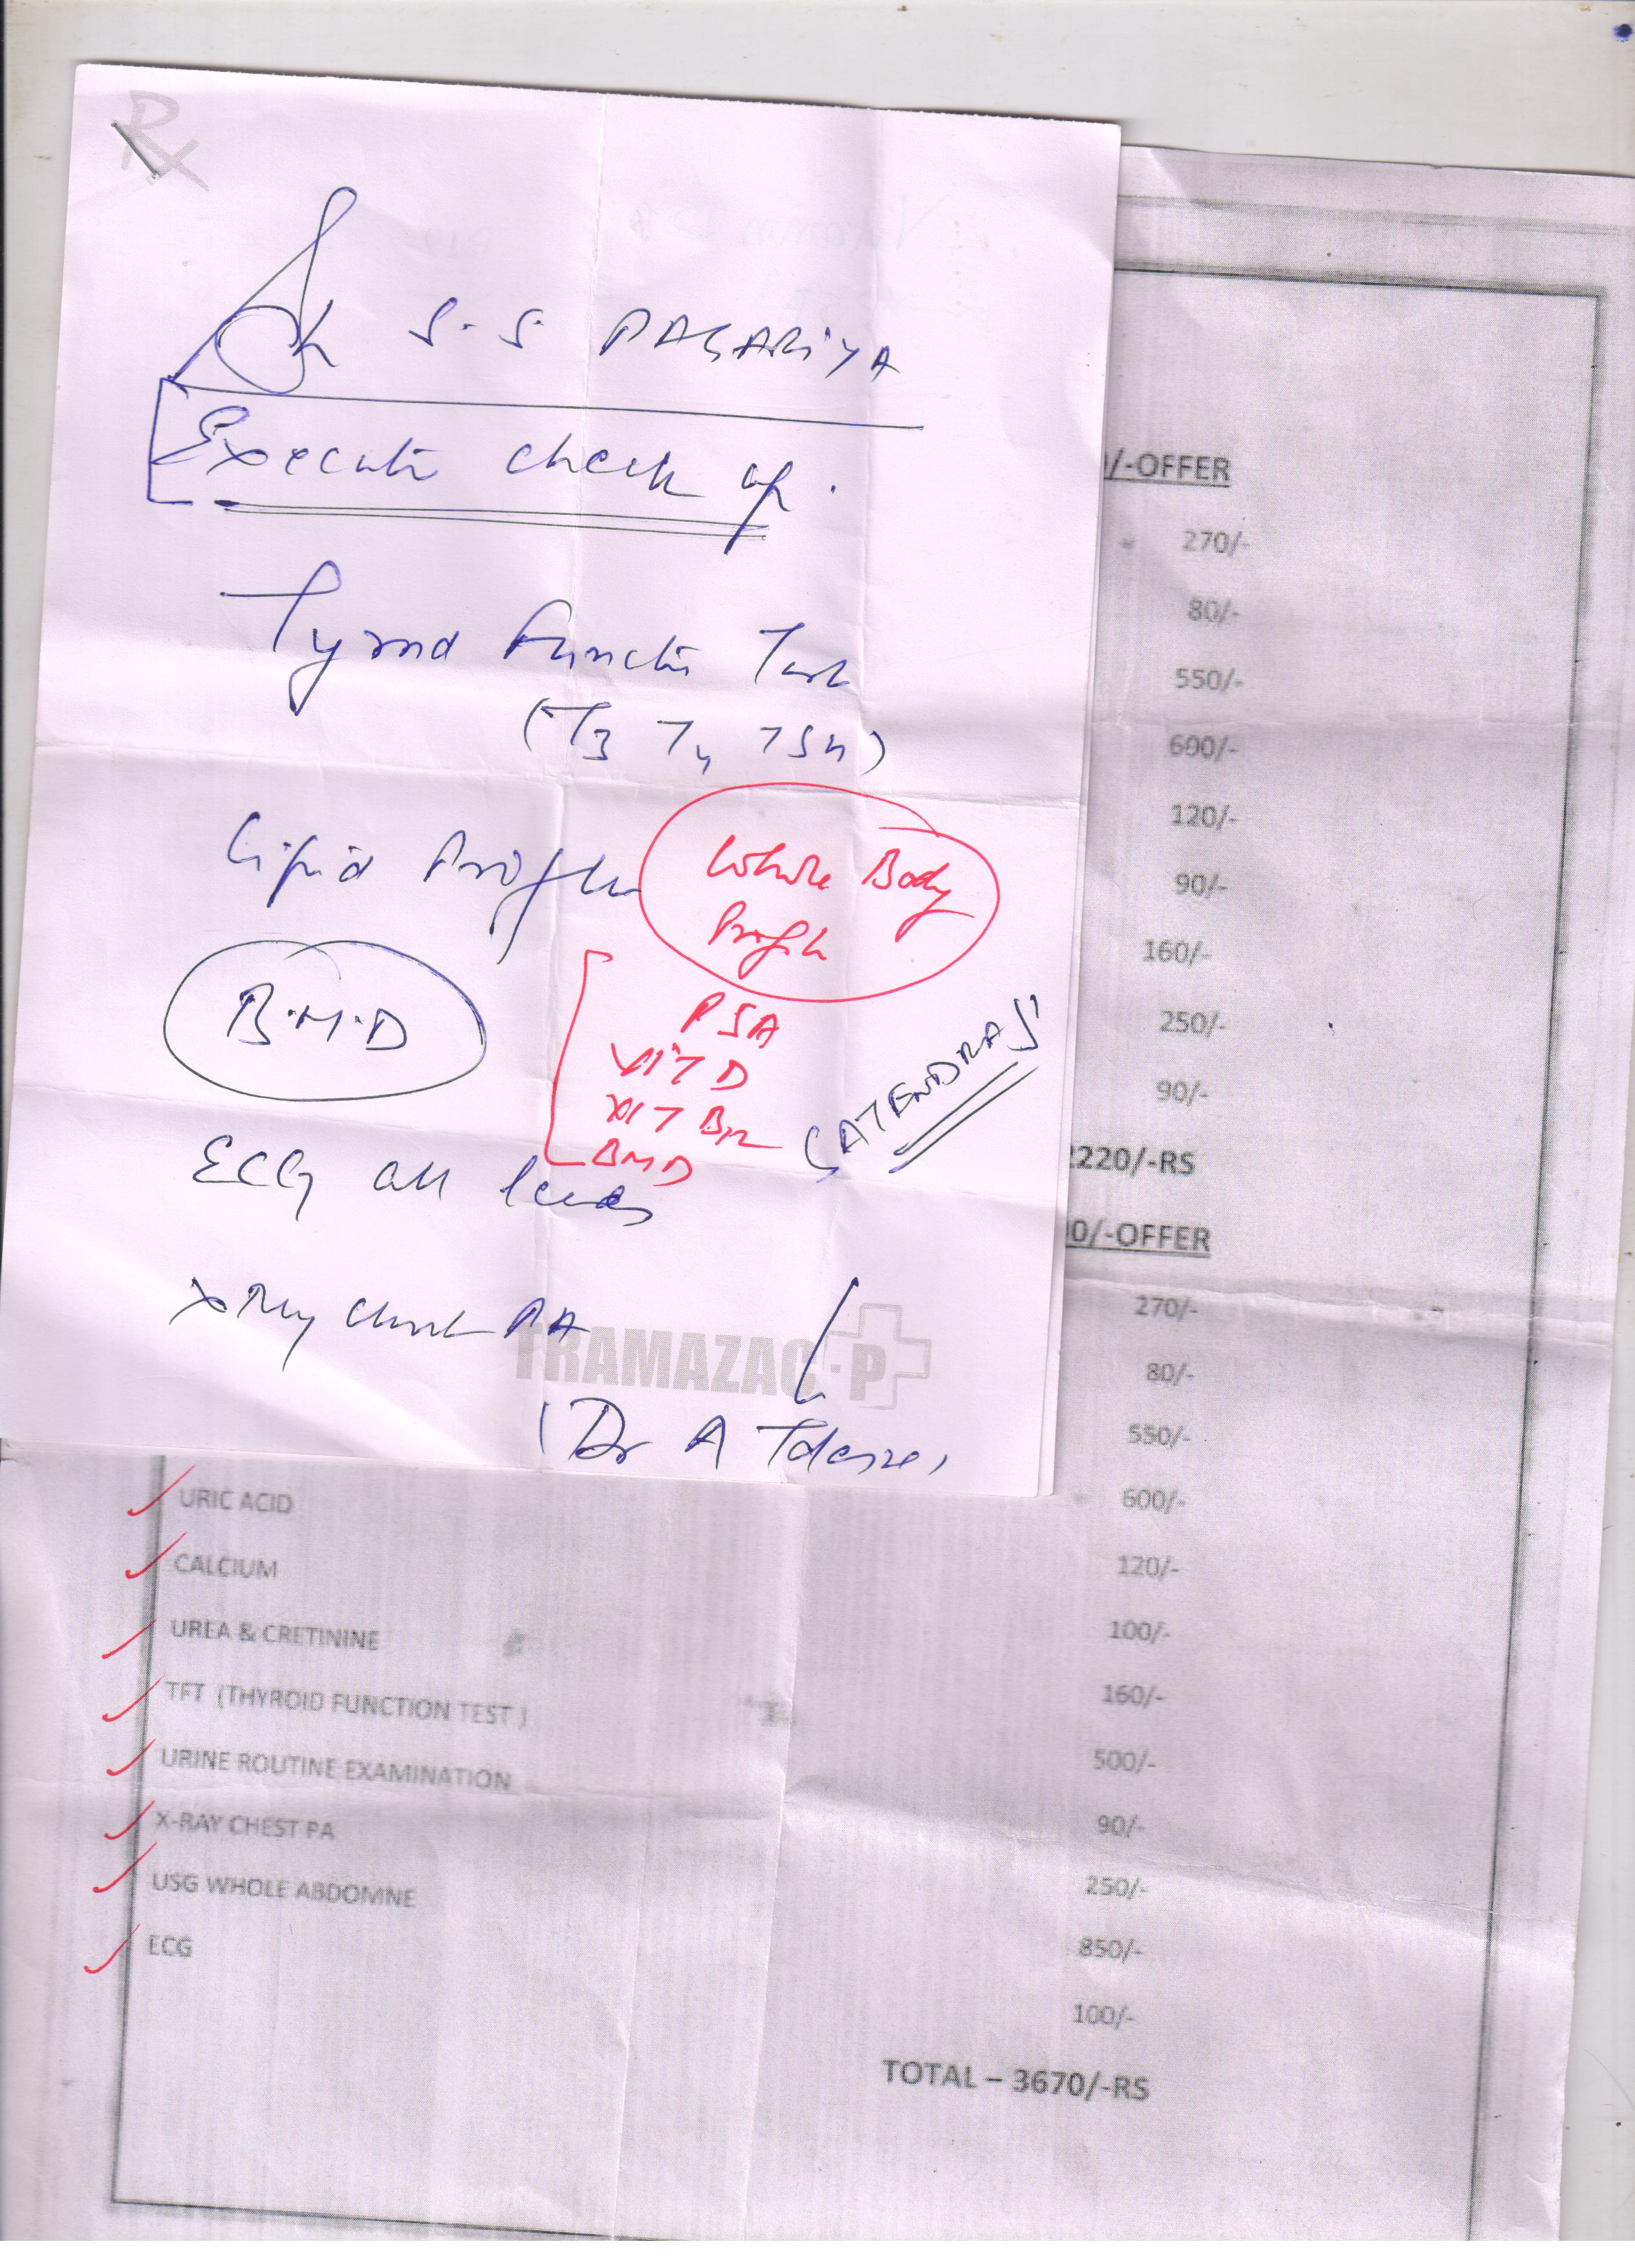 Rx
S. S. PAGARiYA
Executi check up.
Tyroid Functi Test
(T3 T4 TSH)
Lipid Profile
Whole Body
Profile
B.M.D
PSA
VIT D
VIT B12
BMD
SATENDRA S
ECG all leads
X Ray Chest PA
TRAMAZAC-P
(Dr A
/-OFFER
270/-
80/-
550/-
600/-
120/-
90/-
160/-
250/-
90/-
2220/-RS
0/-OFFER
270/-
80/-
550/-
600/-
URIC ACID
120/-
CALCIUM
100/-
UREA & CRETININE
160/-
TFT (THYROID FUNCTION TEST )
500/-
URINE ROUTINE EXAMINATION
90/-
X-RAY CHEST PA
250/-
USG WHOLE ABDOMNE
850/-
ECG
100/-
TOTAL – 3670/-RS